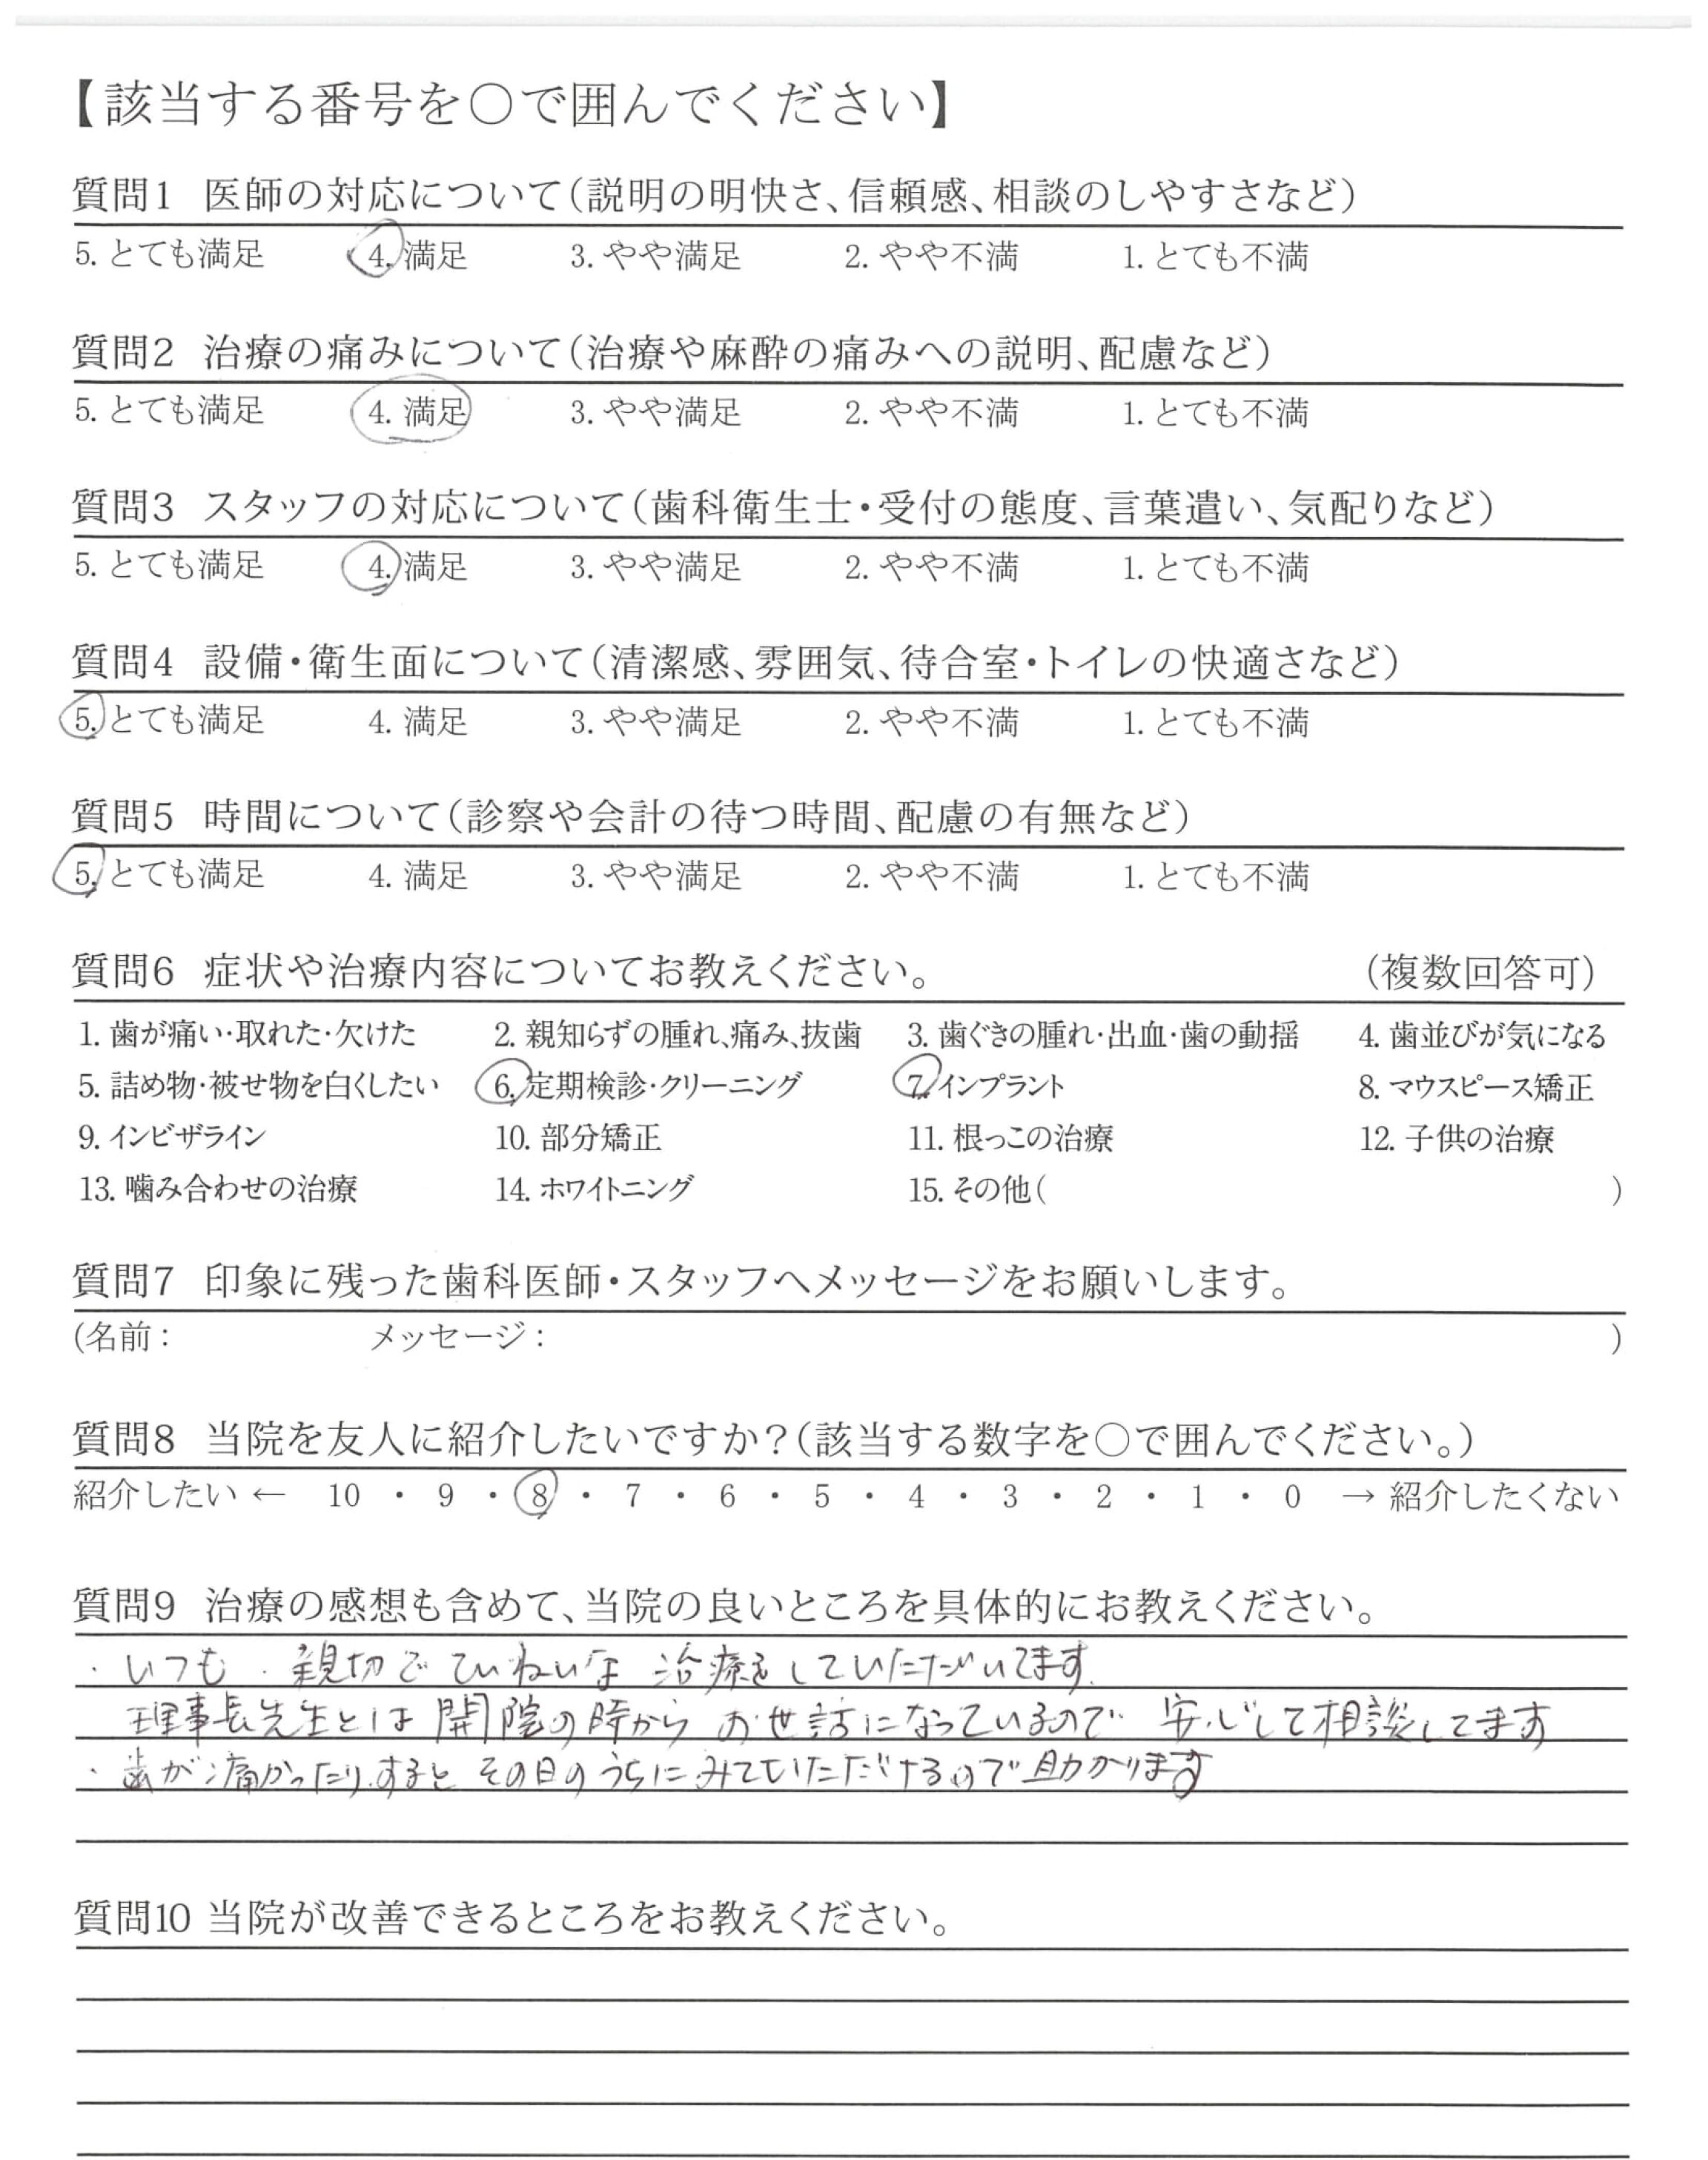 【該当する番号を○で囲んでください】
質問1 医師の対応について(説明の明快さ、信頼感、相談のしやすさなど)
5. とても満足 4. 満足 3. やや満足 2. やや不満 1. とても不満
質問2 治療の痛みについて(治療や麻酔の痛みへの説明、配慮など)
5. とても満足 4. 満足 3. やや満足 2. やや不満 1. とても不満
質問3 スタッフの対応について(歯科衛生士・受付の態度、言葉遣い、気配りなど)
5. とても満足 4. 満足 3. やや満足 2. やや不満 1. とても不満
質問4 設備・衛生面について(清潔感、雰囲気、待合室・トイレの快適さなど)
5. とても満足 4. 満足 3. やや満足 2. やや不満 1. とても不満
質問5 時間について(診察や会計の待つ時間、配慮の有無など)
5. とても満足 4. 満足 3. やや満足 2. やや不満 1. とても不満
質問6 症状や治療内容についてお教えください。 (複数回答可)
1. 歯が痛い・取れた・欠けた 2. 親知らずの腫れ、痛み、抜歯 3. 歯ぐきの腫れ・出血・歯の動揺 4. 歯並びが気になる
5. 詰め物・被せ物を白くしたい 6. 定期検診・クリーニング 7. インプラント 8. マウスピース矯正
9. インビザライン 10. 部分矯正 11. 根っこの治療 12. 子供の治療
13. 噛み合わせの治療 14. ホワイトニング 15. その他( )
質問7 印象に残った歯科医師・スタッフへメッセージをお願いします。
(名前: メッセージ: )
質問8 当院を友人に紹介したいですか?(該当する数字を○で囲んでください。)
紹介したい ← 10 ・ 9 ・ 8 ・ 7 ・ 6 ・ 5 ・ 4 ・ 3 ・ 2 ・ 1 ・ 0 → 紹介したくない
質問9 治療の感想も含めて、当院の良いところを具体的にお教えください。
・いつも、親切でていねいな 治療をしていただいてます。
理事長先生とは 開院の時から お世話になっているので 安心して相談してます
・歯が痛かったりすると その日のうちに みていただけるので 助かります
質問10 当院が改善できるところをお教えください。